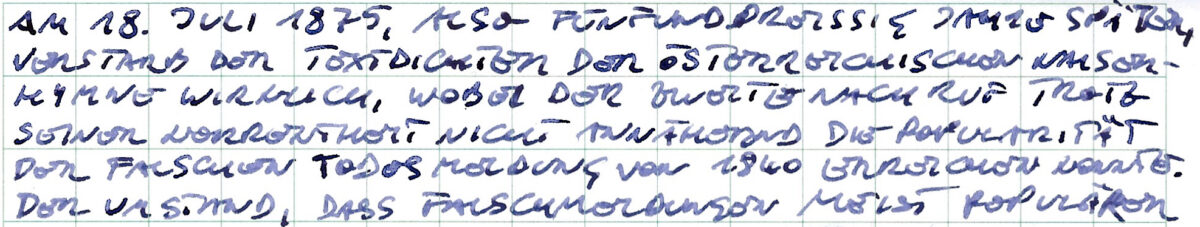 AM 18. JULI 1875, ALSO FÜNFUNDDREISSIG JAHRE SPÄTER,
VERSTARB DER TEXTDICHTER DER ÖSTERREICHISCHEN KAISER-
HYMNE WIRKLICH, WOBEI DER ZWEITE NACHRUF TROTZ
SEINER KORREKTHEIT NICHT ANNÄHERND DIE POPULARITÄT
DER FALSCHEN TODESMELDUNG VON 1840 ERREICHEN KONNTE.
DER UMSTAND, DASS FALSCHMELDUNGEN MEIST POPULÄRER